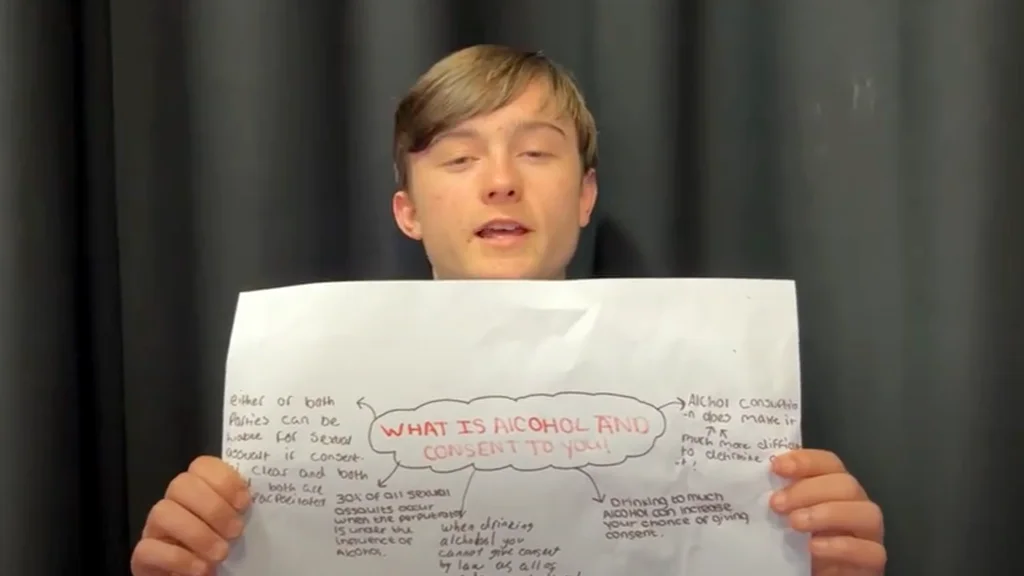 WHAT IS ALCOHOL AND
CONSENT TO YOU!
either or both
Parties can be
for sexual
assault if consent
clear and both
both are
30% of all sexual
assaults occur
when the perputrator
is under the
influence of
Alcohol.
when drinking
alchohol you
cannot give consent
by law as all of
Drinking to much
Alcohol can increase
your chance of giving
consent.
Alchol consuptio
-n does make it
much more difficu
to detrmine